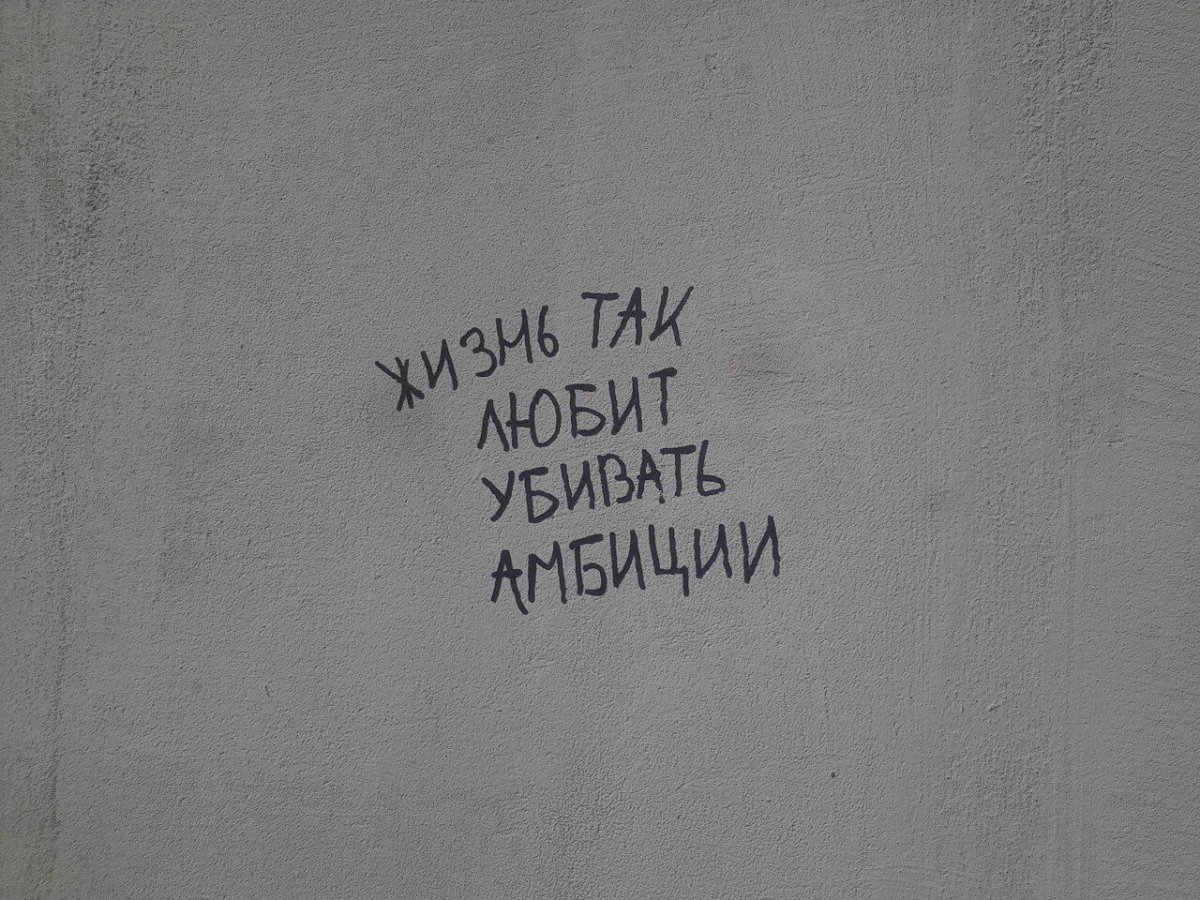 ЖИЗНЬ ТАК
ЛЮБИТ
УБИВАТЬ
АМБИЦИИ